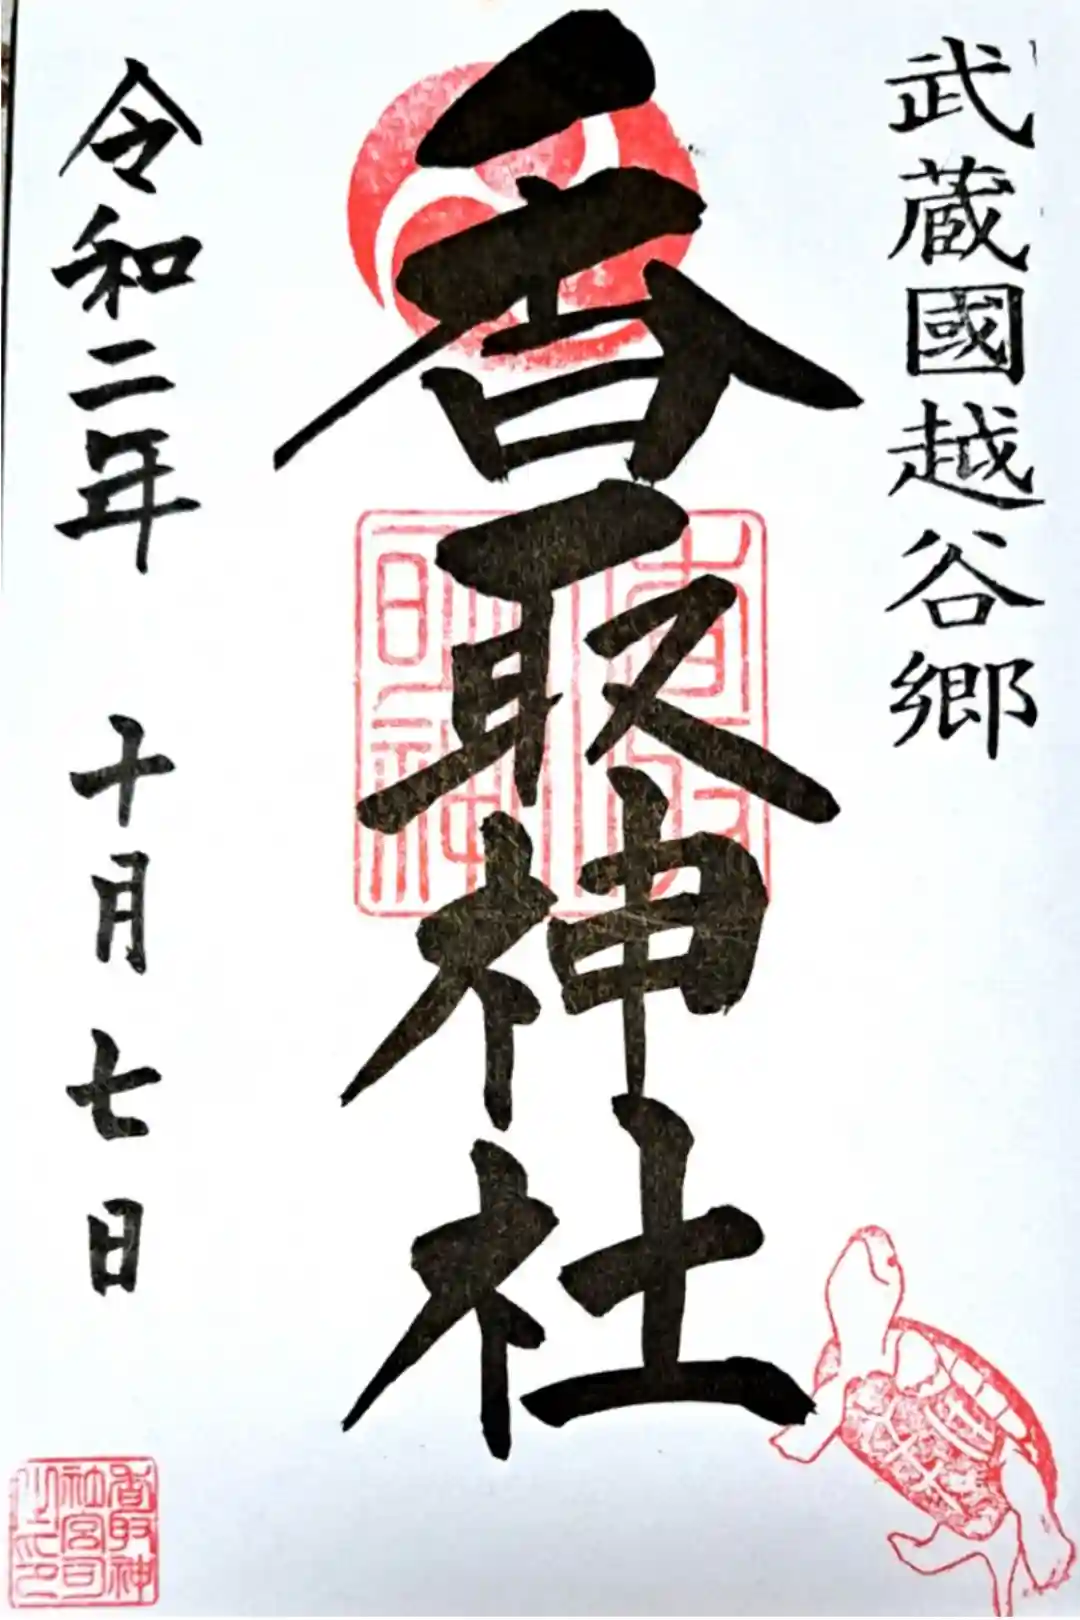 武蔵國越谷郷
香取神社
令和二年 十月七日
香取神
社宮司
之印